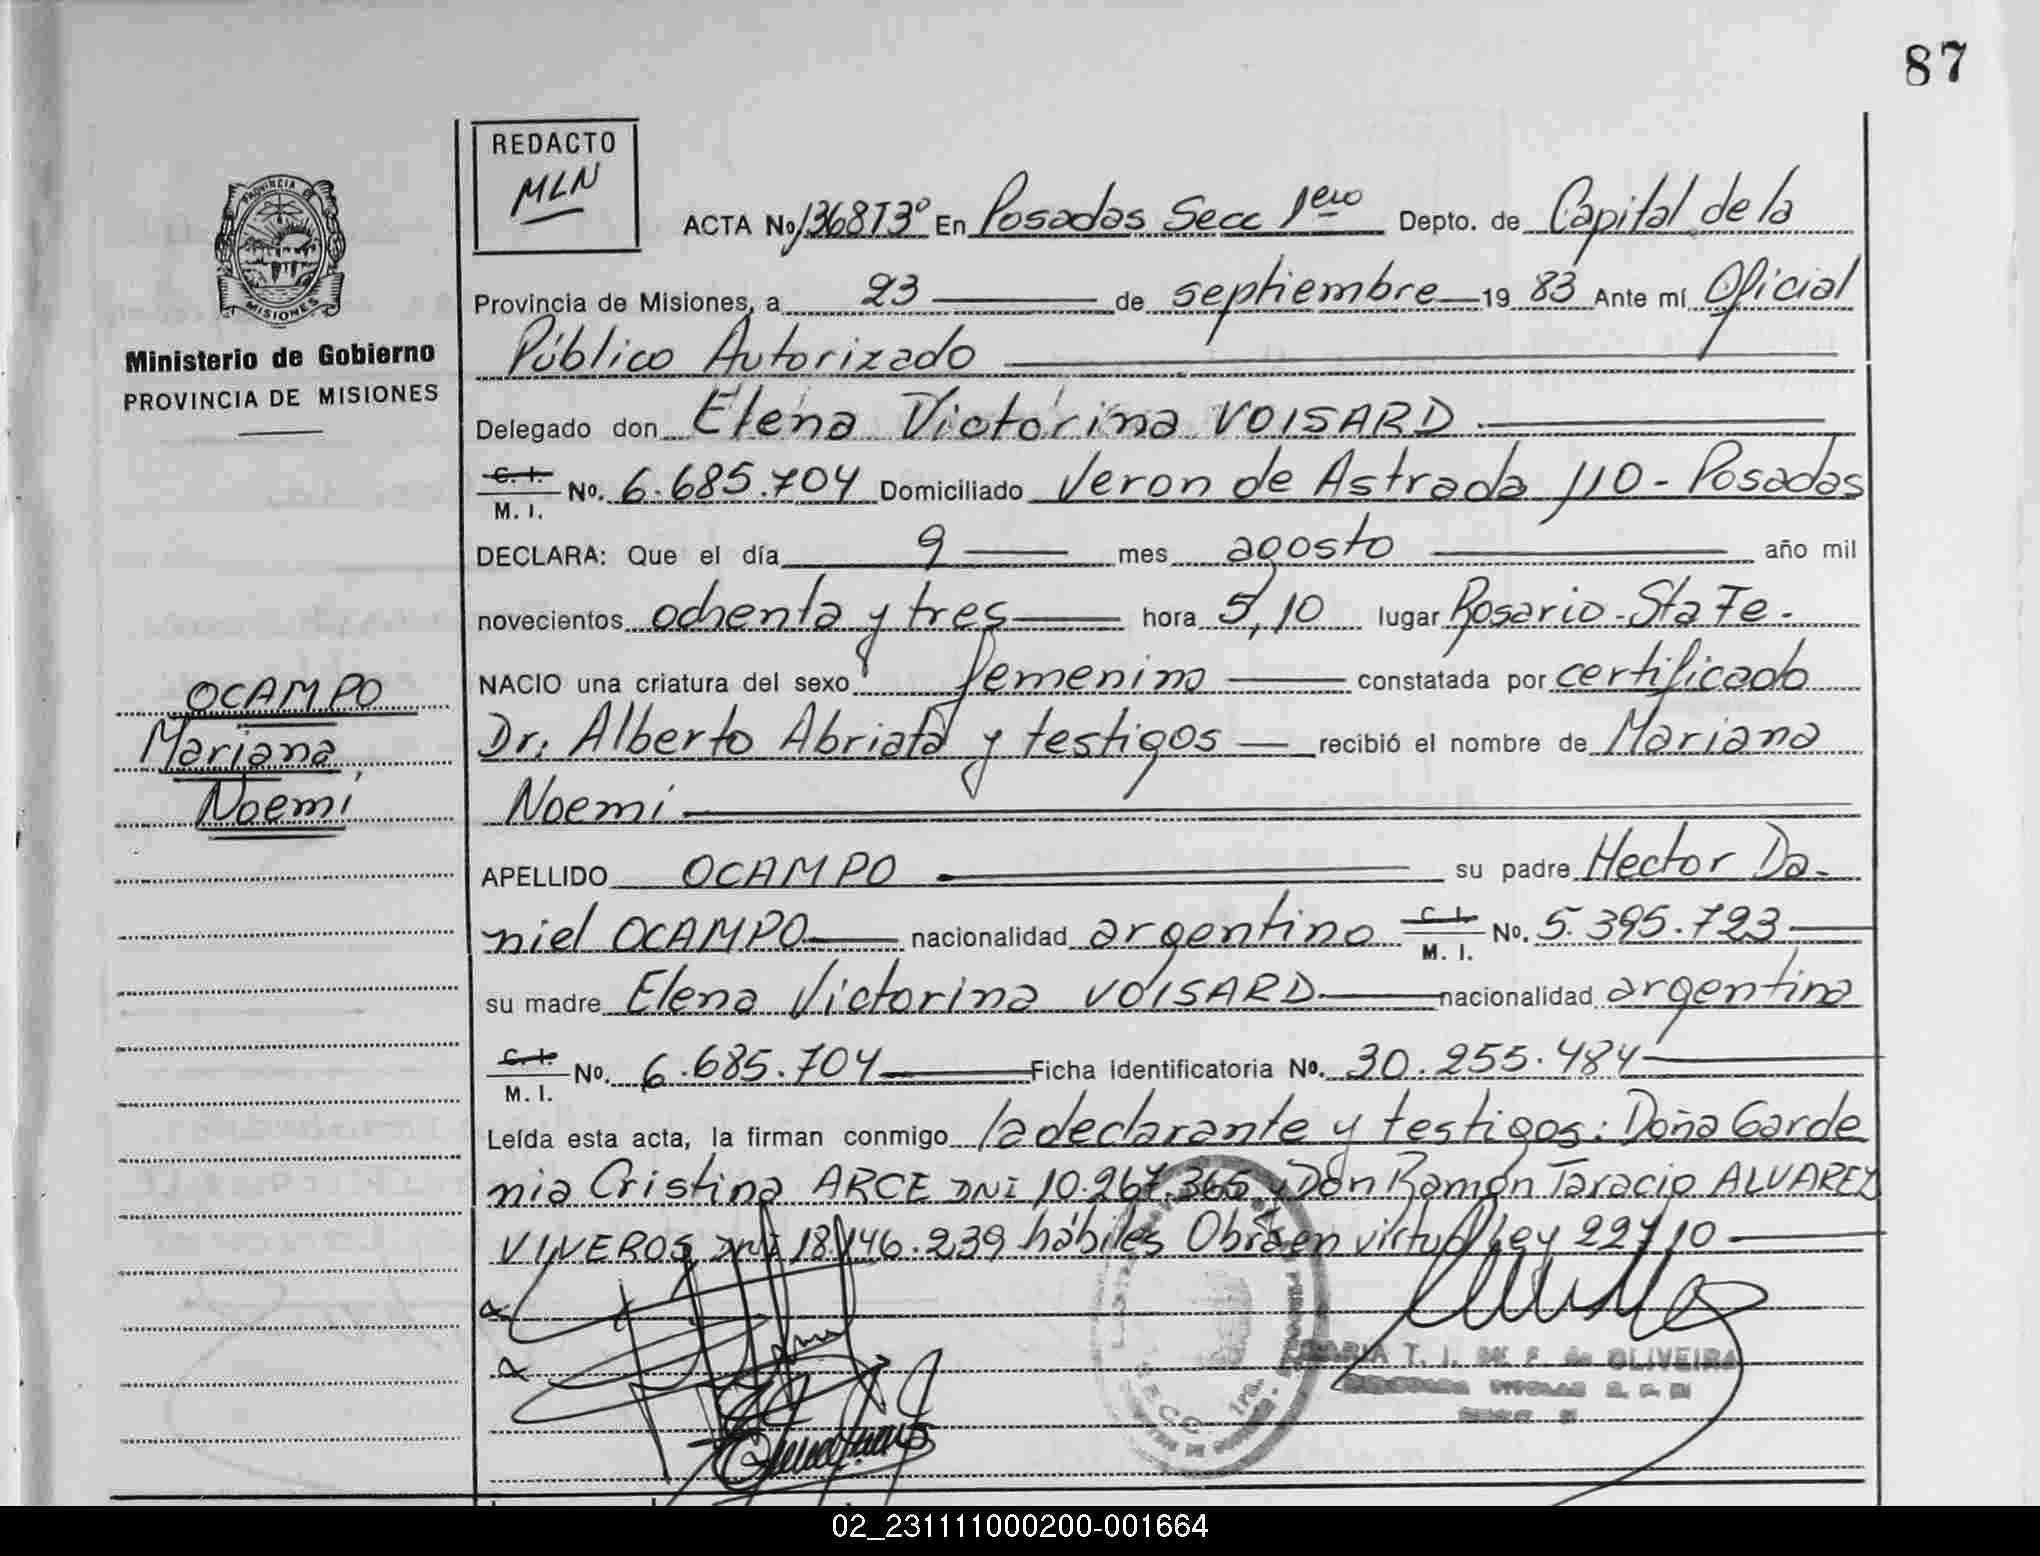 87
REDACTO
MLN
PROVINCIA DE
MISIONES
Ministerio de Gobierno
PROVINCIA DE MISIONES
ACTA No 1368 T3º En Posadas Secc 1era Depto. de Capital de la
Provincia de Misiones, a 23 de septiembre 19 83 Ante mí Oficial
Público Autorizado
Delegado don Elena Victorina VOISARD
C. I. M. I. No. 6.685.704 Domiciliado Veron de Astrada 110 - Posadas
DECLARA: Que el día 9 mes agosto año mil
novecientos ochenta y tres hora 5,10 lugar Rosario - Sta Fe -
NACIO una criatura del sexo femenino constatada por certificado
Dr. Alberto Abriata y testigos recibió el nombre de Mariana
Noemí
OCAMPO
Mariana
Noemí
APELLIDO OCAMPO su padre Hector Da-
niel OCAMPO nacionalidad argentino C. I. M. I. No. 5.395.723
su madre Elena Victorina VOISARD nacionalidad argentina
C. I. M. I. No. 6.685.704 Ficha Identificatoria No. 30.255.484
Leída esta acta, la firman conmigo la declarante y testigos: Doña Garde
nia Cristina ARCE DNI 10.267.365, Don Ramón Taracio ALVAREZ
VIVEROS DNI 18.146.239 hábiles Obra en virtud Ley 22410
MARIA T. I. DE F. de OLIVEIRA
SECC 1ra.
02_231111000200-001664